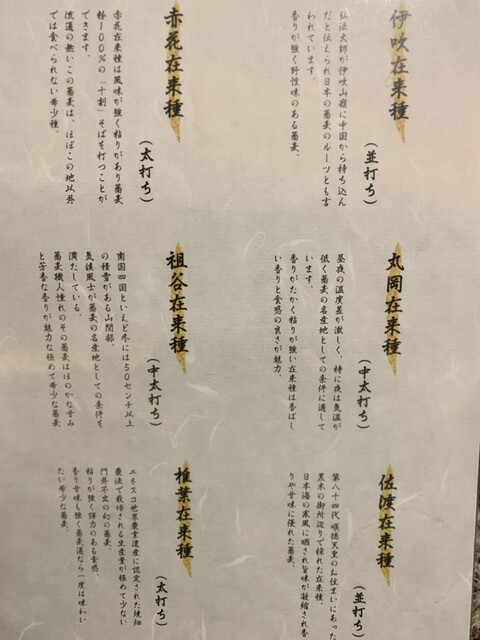 伊吹在来種
(並打ち)
弘法大師が伊吹山麓に中国から持ち込ん
だと伝えられ日本の蕎麦のルーツとも言
われています。
香りが強く野性味のある蕎麦。
赤花在来種
(太打ち)
赤花在来種は風味が強く粘りがあり蕎麦
粉100%の「十割」そばを打つことが
できます。
流通の無いこの蕎麦は、ほぼこの地以外
では食べられない希少種。
丸岡在来種
(中太打ち)
昼夜の温度差が激しく、特に夜は気温が
低く蕎麦の名産地としての条件に適して
います。
香りがたかく粘りが強い在来種は香ばし
い香りと食感の良さが魅力。
祖谷在来種
(中太打ち)
南国四国といえど冬には50センチ以上
の積雪がある山間部。
気候風土が蕎麦の名産地としての条件を
満たしている。
蕎麦職人憧れのその蕎麦はほのかな甘み
と芳香な香りが魅力な極めて希少な蕎麦
佐渡在来種
(並打ち)
第八十四代 順徳天皇のお住まいにあった
黒木の御所辺りで採れた在来種。
日本海の寒風に晒され旨味が凝縮され香
りや甘味に優れた蕎麦。
椎葉在来種
(太打ち)
ユネスコ世界農業遺産に認定された焼畑
農法で栽培される生産量が極めて少ない
門外不出の幻の蕎麦。
粘りが強く弾力のある食感。
香り甘味も強く蕎麦通なら一度は味わい
たい希少な蕎麦。